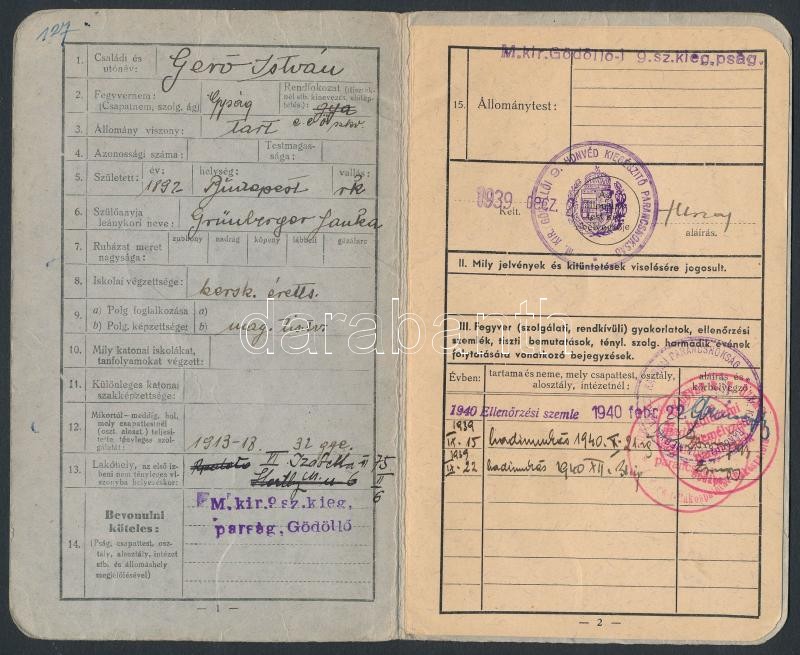 127
1. Családi és utónév: Gerő István
2. Fegyvernem: (Csapatnem, szolg. ág) Gyalogság Rendfokozat
3. Állomány viszony: tart
4. Azonossági száma: Testmagassága:
5. Született: év: 1892 helység: Budapest vallás: rk
6. Szülőanyja leánykori neve: Grünberger Janka
7. Ruházat méret nagysága: zubbony nadrág köpeny lábbeli gázálarc
8. Iskolai végzettsége: kersk. éretts.
9. a) Polg foglalkozása a)
b) Polg. képzettsége: b) mag. tisztv.
10. Mily katonai iskolákat, tanfolyamokat végzett:
11. Különleges katonai szakképzettsége:
12. Mikortól—meddig, hol, mely csapattestnél (oszt. alaszt.) teljesitette tényleges szolgálatát: 1913-18. 32 gye.
13. Lakóhely, az első izbeni nem tényleges viszonyba helyezéskor: VI Izabella u 75
14. Bevonulni köteles:
(Pság, csapattest, osztály, alosztály, intézet stb. és állomáshely megjelölésével)
M.kir.9.sz.kieg.
parság, Gödöllő
— 1 —
M.kir.Gödöllő-i 9.sz.kieg.pság.
15. Állománytest:
M. KIR. GÖDÖLLŐI 9. HONVÉD KIEGÉSZÍTŐ PARANCSNOKSÁG
1939 DECZ.
Kelt.
aláírás.
II. Mily jelvények és kitüntetések viselésére jogosult.
III. Fegyver (szolgálati, rendkívüli) gyakorlatok, ellenőrzési
szemlék, tiszti bemutatások, tényl. szolg. harmadik évének
folytatására vonatkozó bejegyzések.
Évben: tartama és neme, mely csapattest, osztály, alosztály, intézetnél: aláírás és
1940 Ellenőrzési szemle 1940 febr 22.
1939 IX. 15 hadimunkás 1940. X. 21.ig
1939 IX. 22 hadimunkás 1940 XII
— 2 —
darabanth